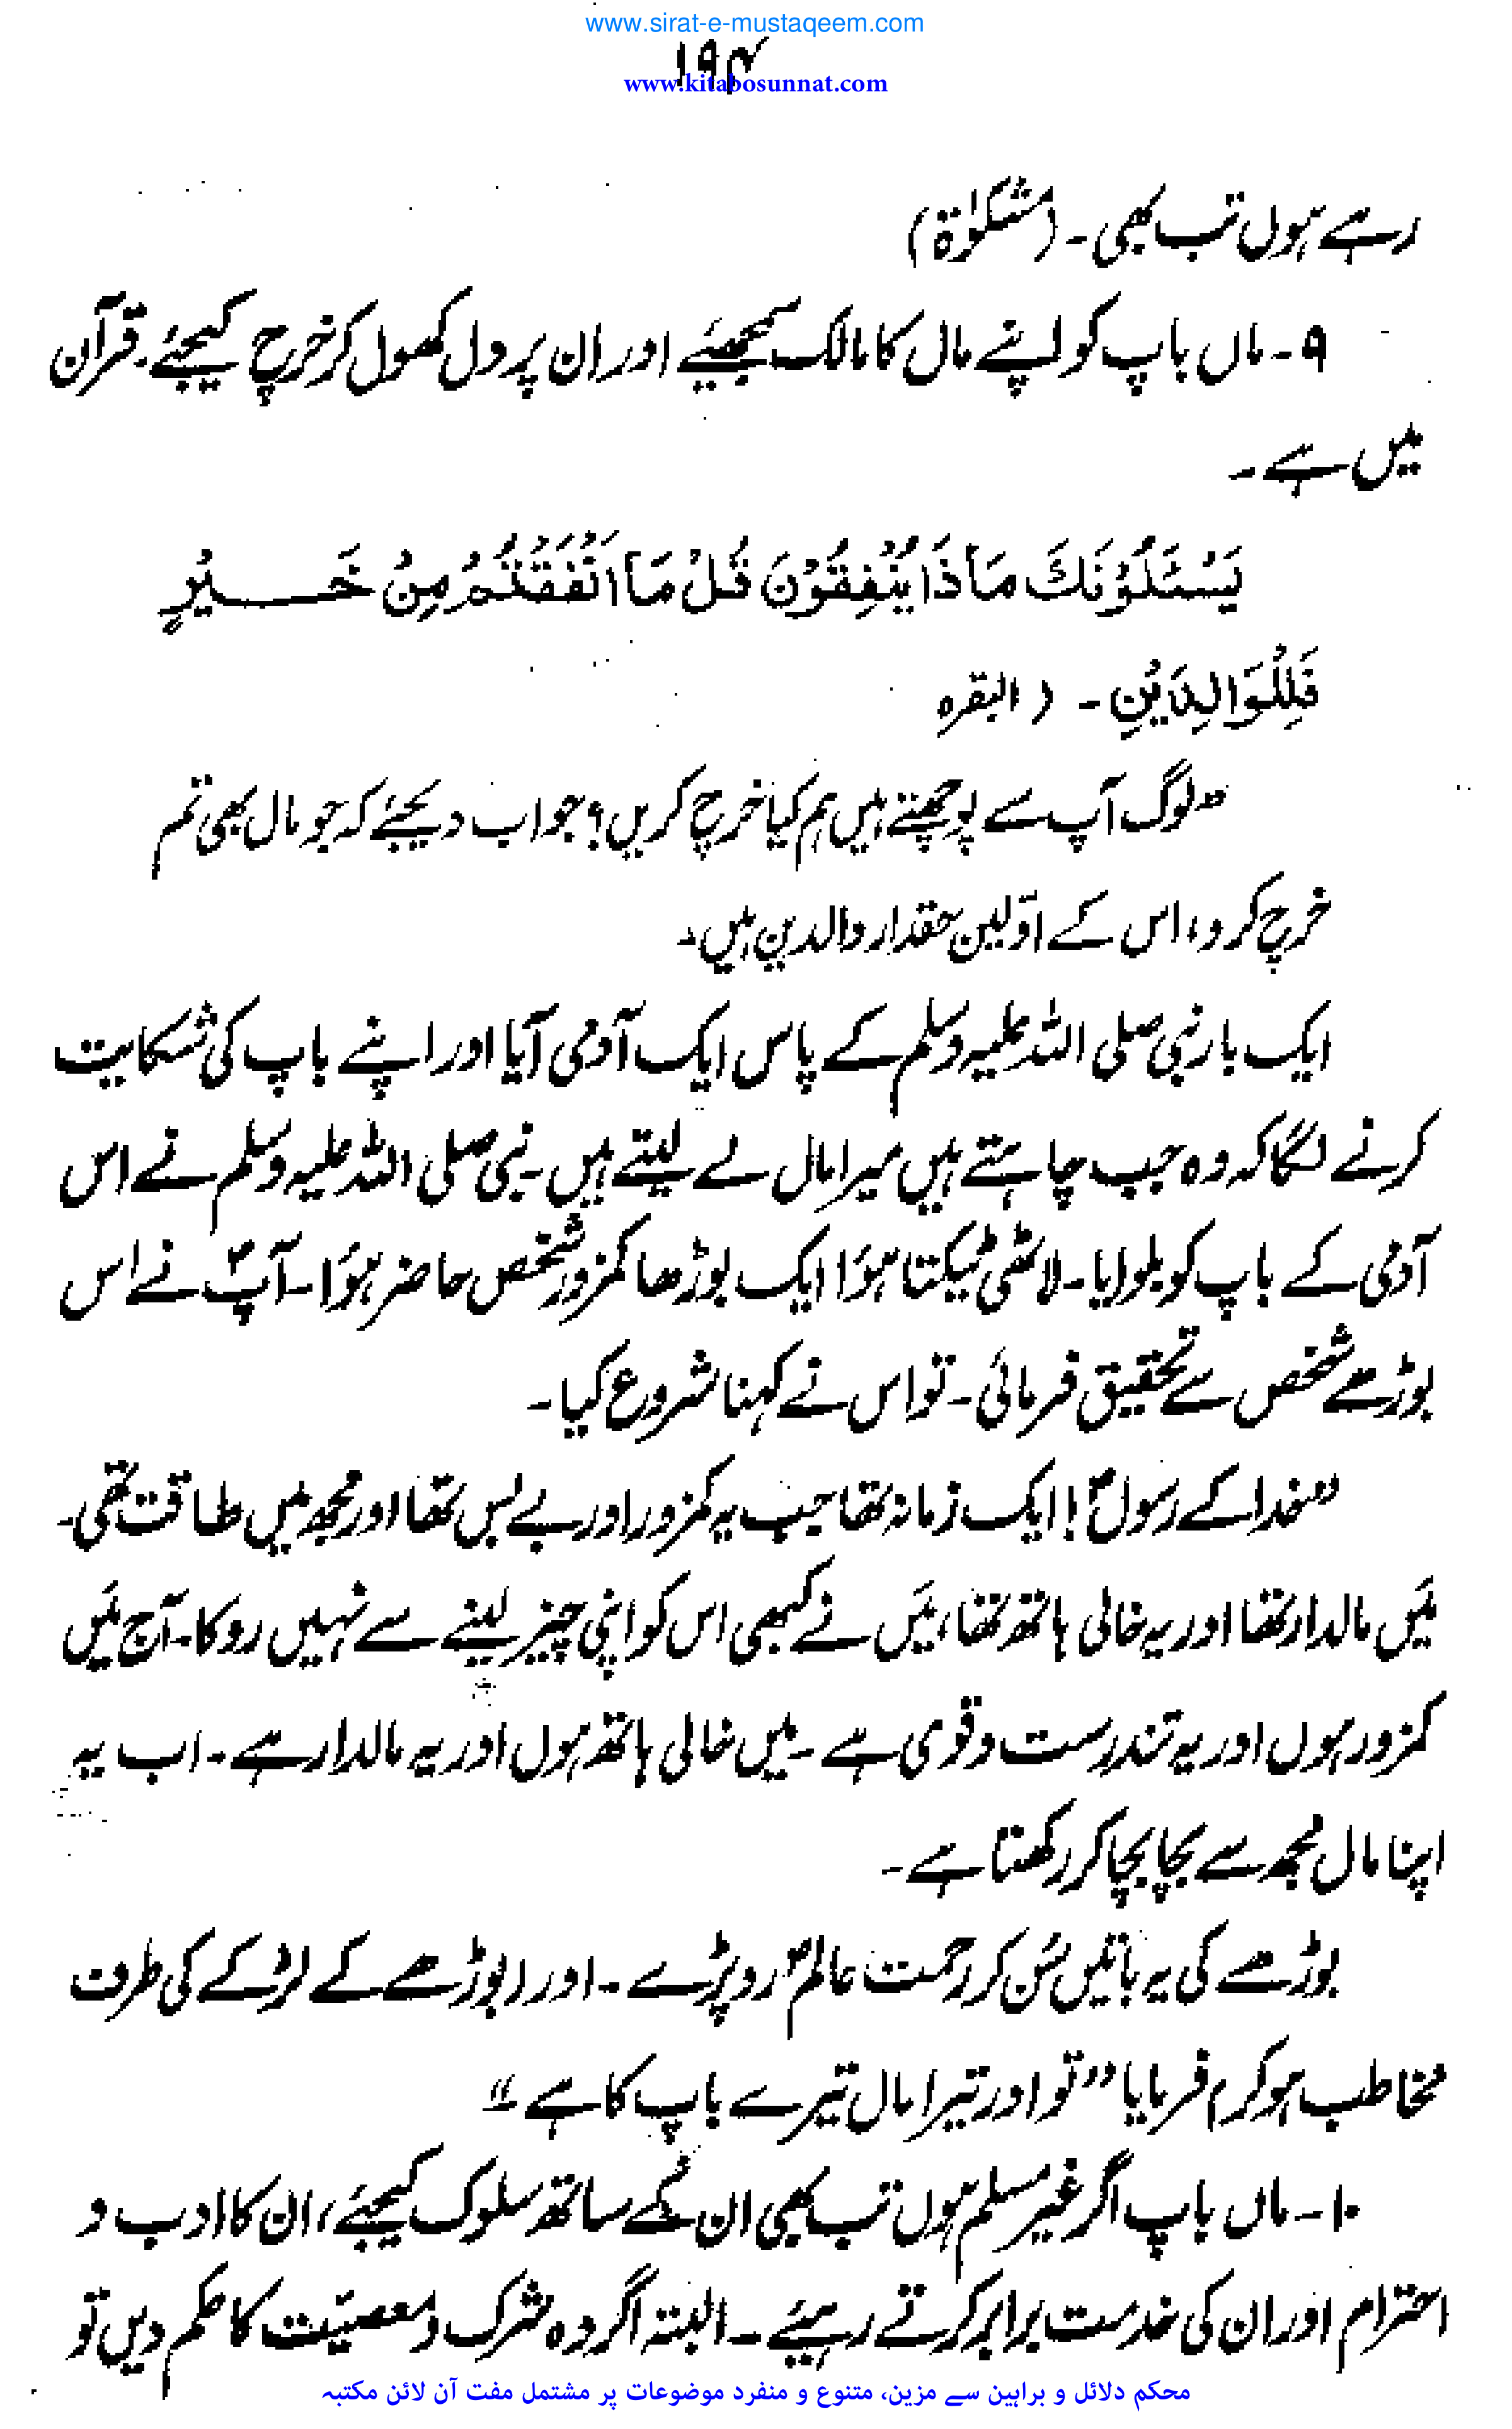 www.sirat-e-mustaqeem.com
۱۹۴
www.kitabosunnat.com
رہے ہوں تب بھی ۔ (مشکوٰۃ)
۹ ۔ ماں باپ کو اپنے مال کا مالک سمجھئیے اور ان پر دل کھول کر خرچ کیجئے ۔ قرآن
میں ہے ۔
يَسْـَٔلُوْنَكَ مَاذَا يُنْفِقُوْنَ قُلْ مَا اَنْفَقْتُمْ مِنْ خَــيْرٍ
فَلِلْوَالِدَيْنِ ۔ ( البقرہ
”لوگ آپ سے پوچھتے ہیں ہم کیا خرچ کریں؟ جواب دیجئے کہ جو مال بھی تم
خرچ کرو، اس کے اوّلین حقدار والدین ہیں۔
ایک بار نبی صلی اللہ علیہ وسلم کے پاس ایک آدمی آیا اور اپنے باپ کی شکایت
کرنے لگا کہ وہ جب چاہتے ہیں میرا مال لے لیتے ہیں ۔ نبی صلی اللہ علیہ وسلم نے اس
آدمی کے باپ کو بلوایا ۔ لاٹھی ٹیکتا ہوَا ایک بوڑھا کمزور شخص حاضر ہوَا ۔ آپؐ نے اس
بوڑھے شخص سے تحقیق فرمائی ۔ تو اس نے کہنا شروع کیا ۔
”خدا کے رسولؐ ! ایک زمانہ تھا جب یہ کمزور اور بے بس تھا اور مجھ میں طاقت تھی ۔
مَیں مالدار تھا اور یہ خالی ہاتھ تھا، مَیں نے کبھی اس کو اپنی چیز لینے سے نہیں روکا ۔ آج مَیں
کمزور ہوں اور یہ تندرست و قوی ہے ۔ میں خالی ہاتھ ہوں اور یہ مالدار ہے ۔ اب یہ
اپنا مال مجھ سے بچا بچا کر رکھتا ہے ۔
بوڑھے کی یہ باتیں سُن کر رحمت عالمؐ رو پڑے ۔ اور (بوڑھے کے لڑکے کی طرف
مخاطب ہو کر) فرمایا ”تو اور تیرا مال تیرے باپ کا ہے“
۱۰ ۔ ماں باپ اگر غیر مسلم ہوں تب بھی ان کے ساتھ سلوک کیجئے، ان کا ادب و
احترام اور ان کی خدمت برابر کرتے رہیئے ۔ البتہ اگر وہ شرک و معصیّت کا حکم دیں تو
محکم دلائل و براہین سے مزین، متنوع و منفرد موضوعات پر مشتمل مفت آن لائن مکتبہ